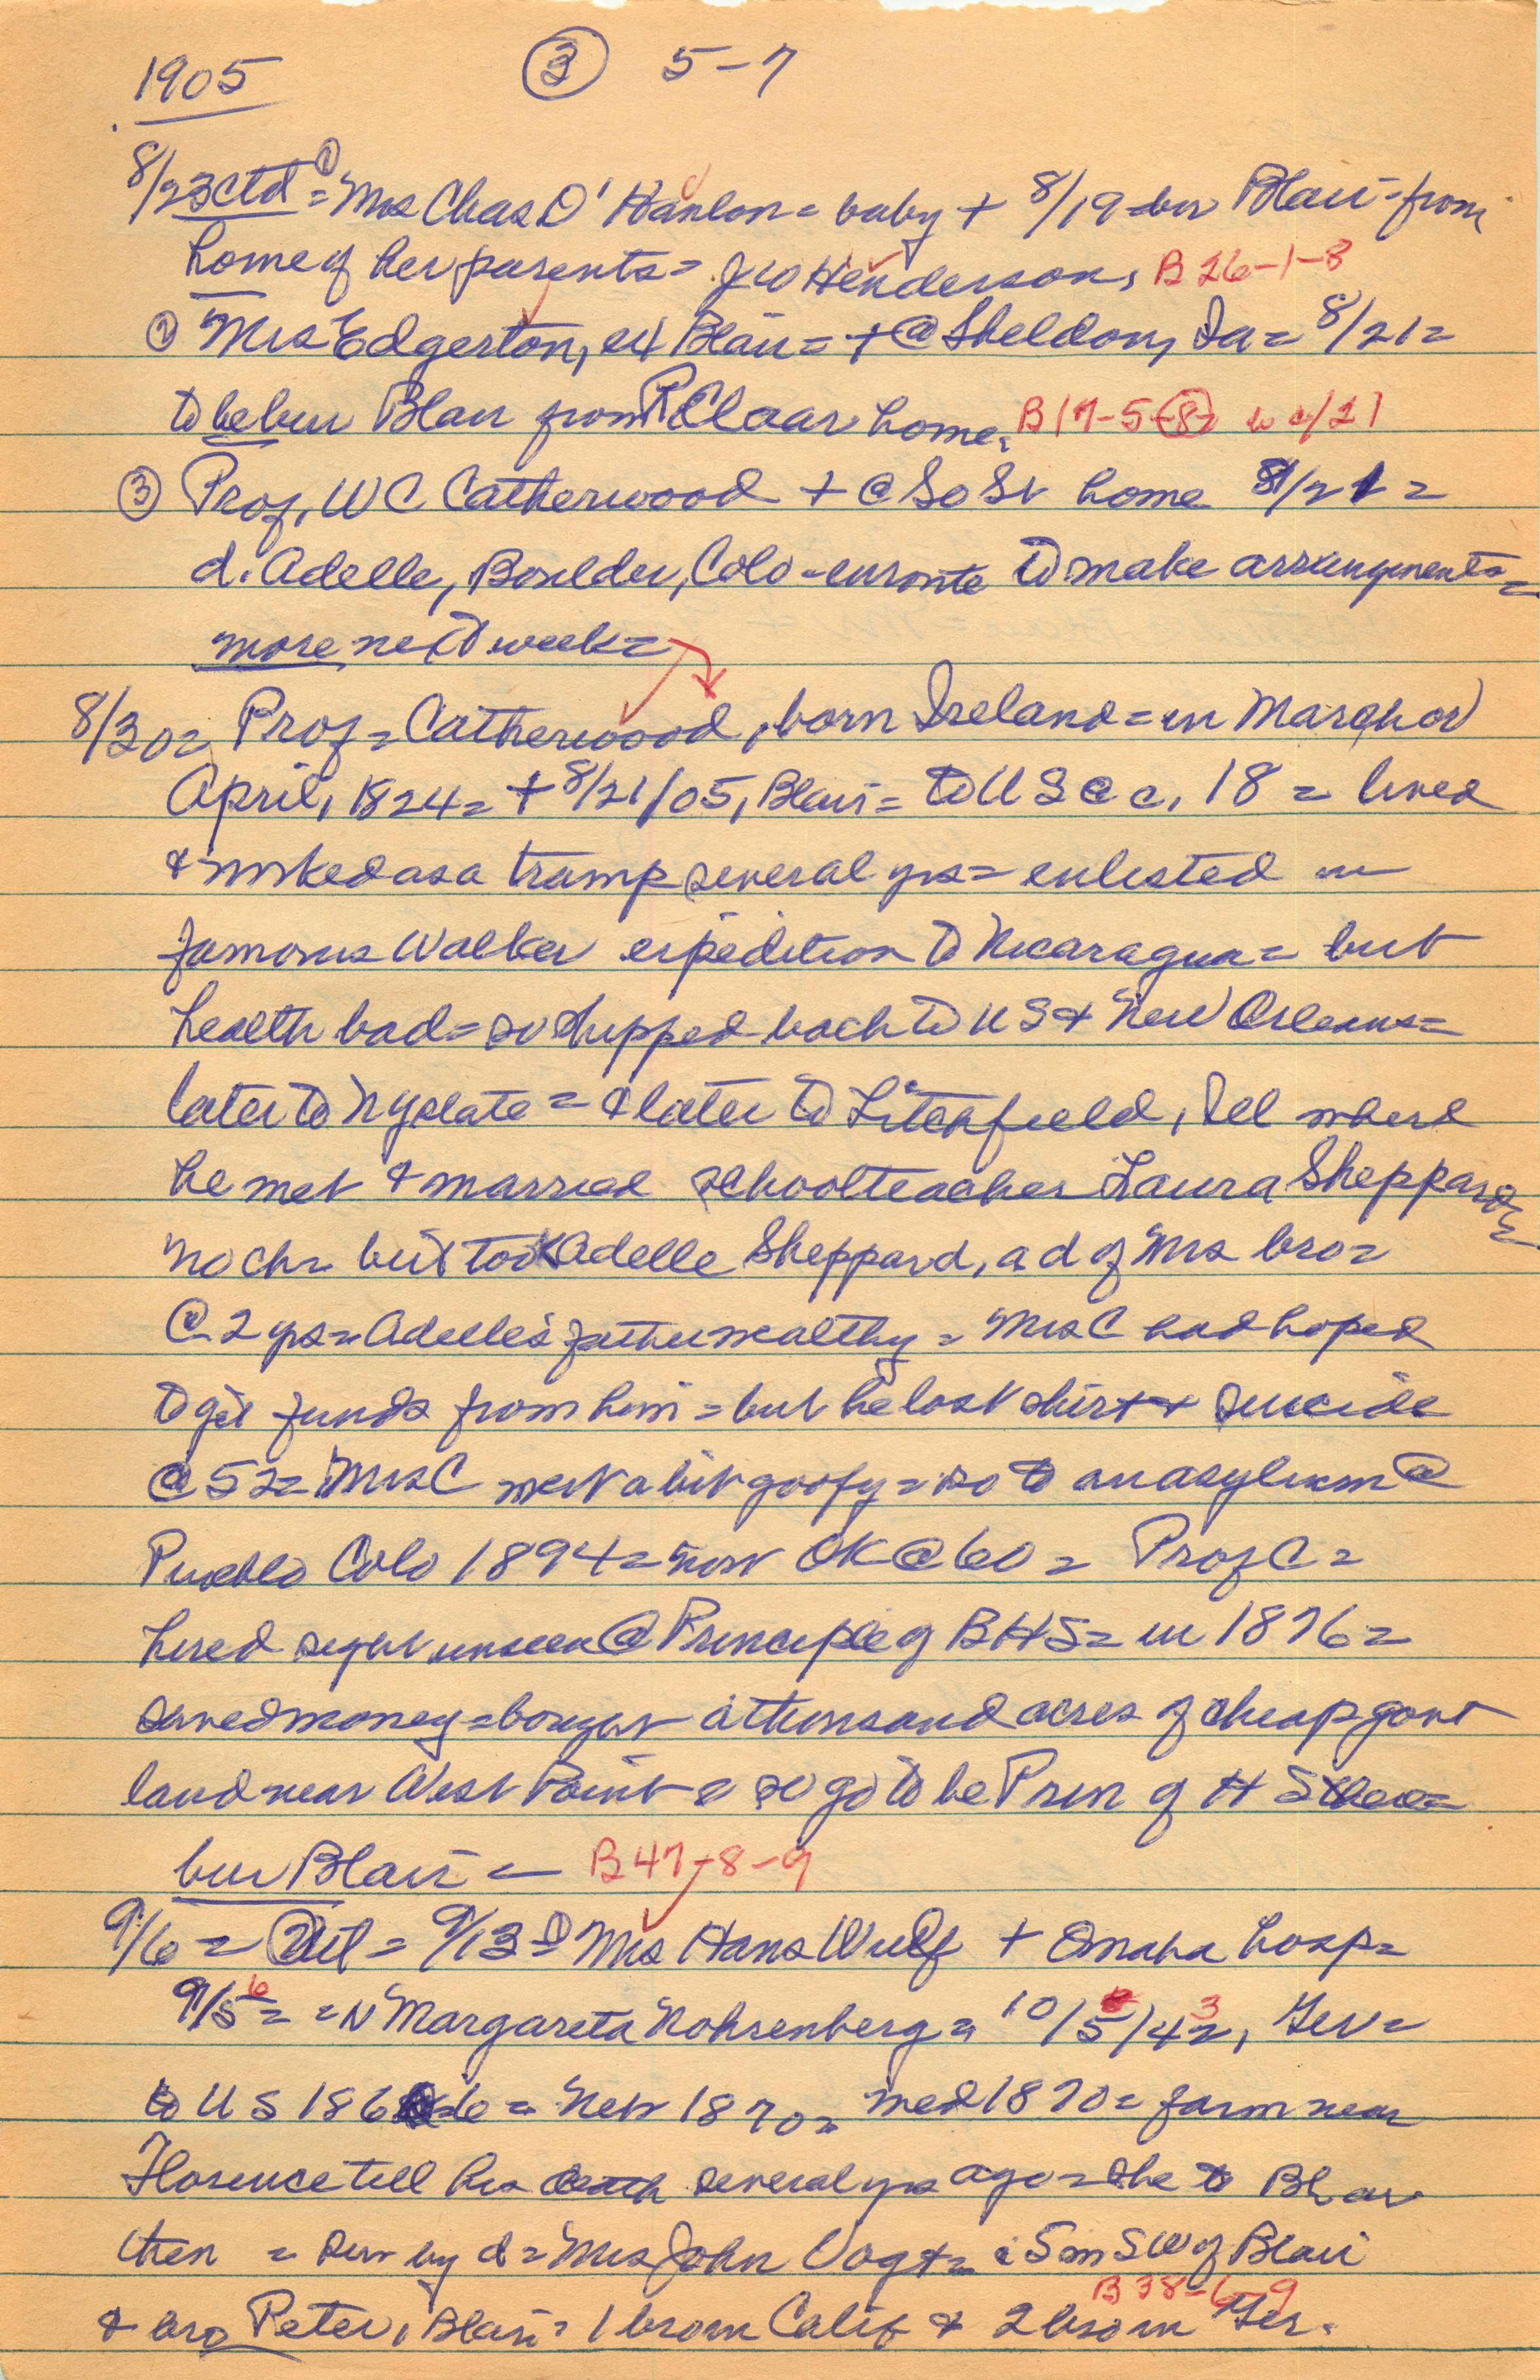 1905 ③ 5-7
8/23 ctd = ① Mrs Chas O'Hanlon = baby + 8/19 - bur Blair - from
home of her parents = J W Henderson, B 26-1-8
② Mrs Edgerton, ex Blair = + @ Sheldon, Ia = 8/21 =
to be bur Blair from Claar home. B 17-5-8
③ Prof. W C Catherwood + @ So St home 8/21 =
d. Adelle, Boulder, Colo - enroute to make arrangements =
more next week =
8/30 = Prof = Catherwood, born Ireland = in March or
April, 1824 = + 8/21/05, Blair = to U S @ c. 18 = lived
& worked as a tramp several yrs = enlisted in
famous Walker expedition to Nicaragua = but
health bad = so shipped back to U S & New Orleans =
later to N Y state = & later to Litchfield, Ill where
he met & married schoolteacher Laura Sheppard =
no ch = but took Adelle Sheppard, a d of Mrs bro =
@ 2 yrs = Adelle's father wealthy = Mrs C had hoped
to get funds from him = but he lost shirt + suicide
@ 52 = Mrs C went a bit goofy = so to an asylum @
Pueblo Colo 1894 = now OK @ 60 = Prof C =
hired sight unseen @ Principle of B H S = in 1876 =
saved money = bought a thousand acres of cheap govt
land near West Point = so go to be Prin of H S there =
bur Blair = B 47-8-9
9/6 = Out = 9/13 = ① Mrs Hans Wulf + Omaha hosp =
9/5 = 6 = N Margareta Rohrenberg = 10/5/42, 3 Ger =
to U S 1866 = Neb 1870 = med 1870 = farm near
Florence till his death several yrs ago = she to Blair
then = sur by d = Mrs John Vogt = c 5 m SW of Blair
& bro Peter, Blair = 1 bro in Calif & 2 bro in Ger. B 38-6-9